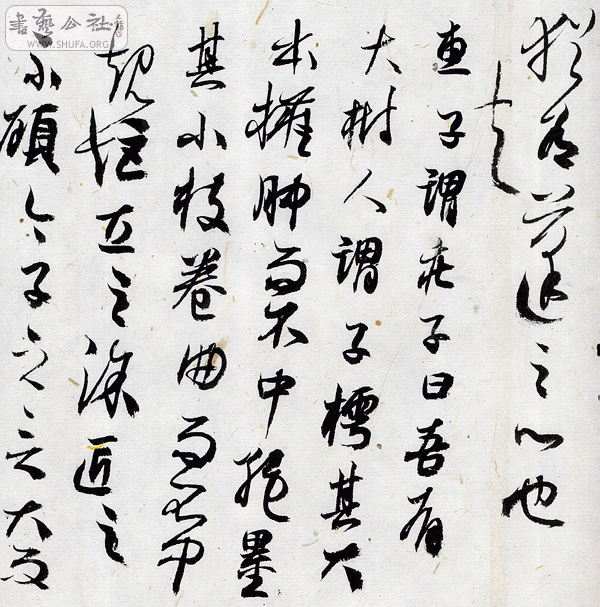 書藝公社
WWW.SHUFA.ORG
猶有蓬之心也
夫
惠子謂莊子曰吾有
大樹人謂子樗其大
本擁肿而不中繩墨
其小枝卷曲而不中
規矩立之涂匠之
不顧今子之言大而